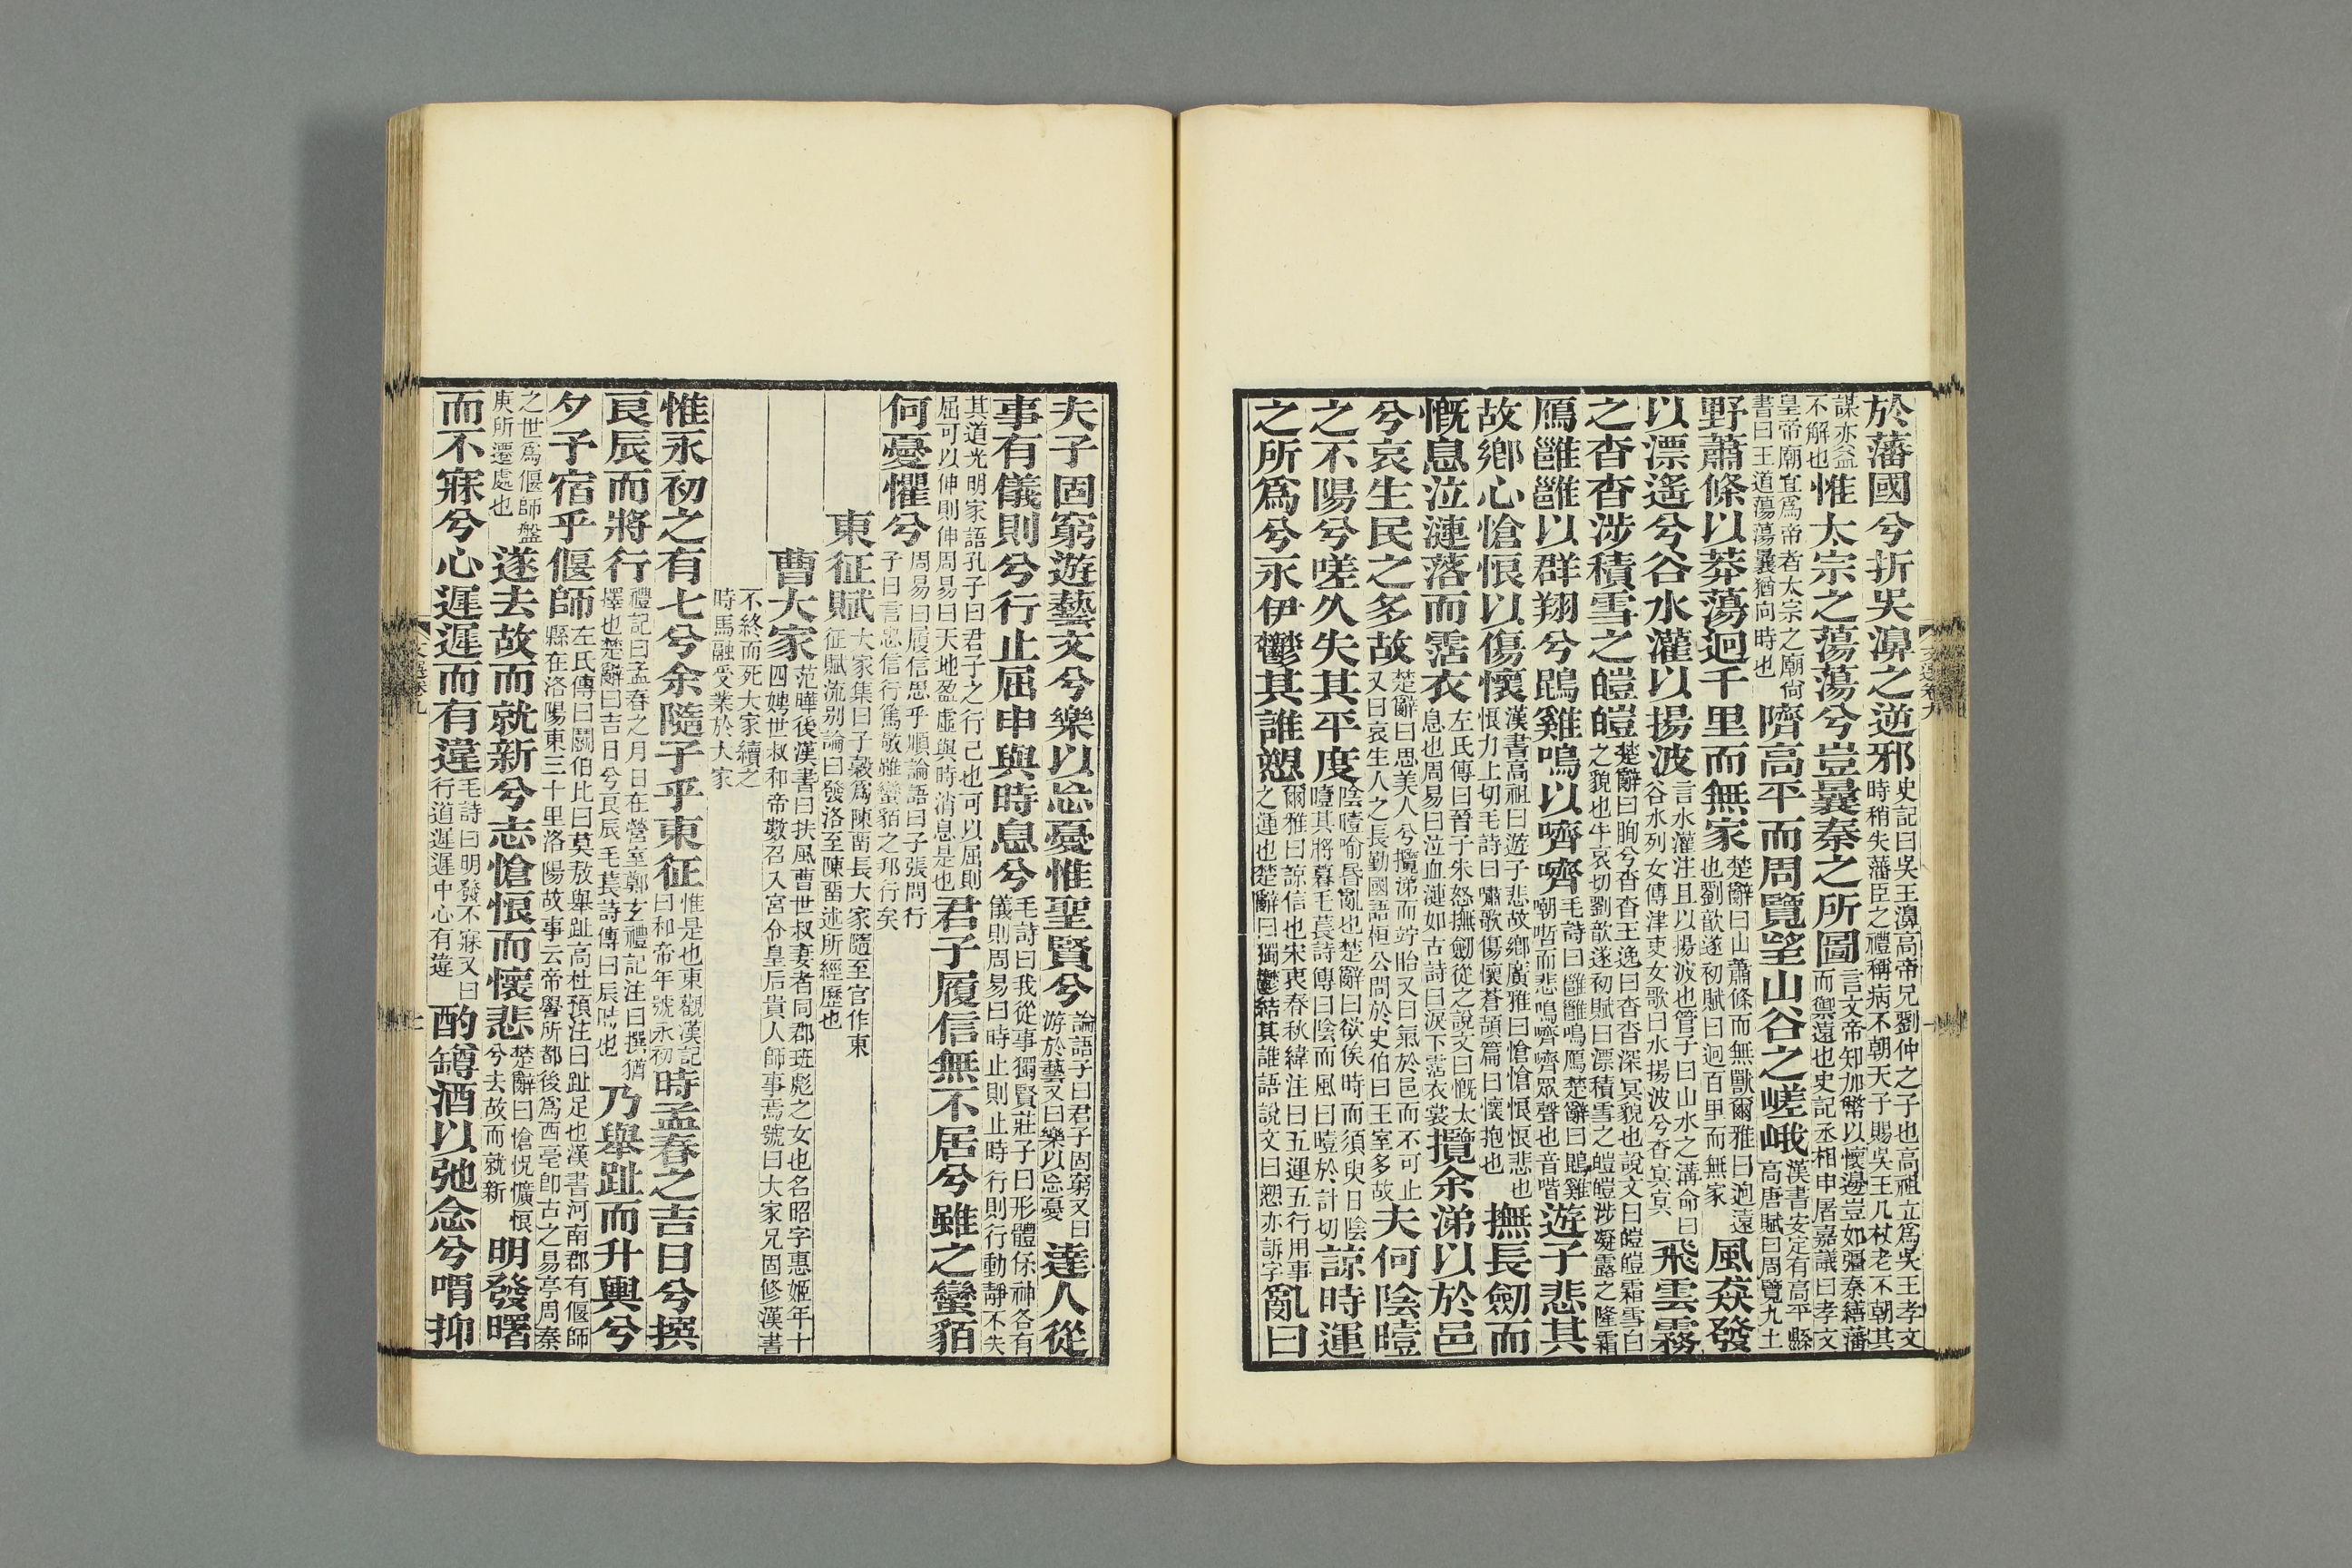 於藩國兮折吳濞之逆邪史記曰吳王濞高帝兄劉仲之子也高祖立爲吳王孝文時稍失藩臣之禮稱病不朝天子賜吳王几杖老不朝其
謀亦益不解也惟太宗之蕩蕩兮豈曩秦之所圖言文帝知加幣以懷邊豈如彊秦繕藩而禦遠也史記丞相申屠嘉議曰孝文
皇帝廟宜爲帝者太宗之廟尙書曰王道蕩蕩曩猶向時也隮高平而周覽望山谷之嵯峨漢書安定有高平縣高唐賦曰周覽九土
野蕭條以莽蕩迥千里而無家楚辭曰山蕭條而無獸爾雅曰迥遠也劉歆遂初賦曰迥百里而無家風猋發
以漂遙兮谷水灌以揚波言水灌注且以揚波也管子曰山水之溝命曰谷水列女傳津吏女歌曰水揚波兮杳冥冥飛雲霧
之杳杳涉積雪之皚皚楚辭曰眴兮杳杳王逸曰杳杳深冥貌也說文曰皚皚霜雪白之貌也牛哀切劉歆遂初賦曰漂積雪之皚皚涉凝露之隆霜
鴈邕邕以群翔兮鵾雞鳴以嚌嚌毛詩曰雝雝鳴鴈楚辭曰鵾雞嘲哳而悲鳴嚌嚌眾聲也音喈遊子悲其
故鄉心愴悢以傷懷漢書高祖曰遊子悲故鄉廣雅曰愴愴悢悢悲也悢力上切毛詩曰嘯歌傷懷蒼頡篇曰懷抱也撫長劒而
慨息泣漣落而霑衣左氏傳曰晉子朱怒撫劒從之說文曰慨太息也周易曰泣血漣如古詩曰淚下霑衣裳攬余涕以於邑
兮哀生民之多故楚辭曰思美人兮攬涕而竚眙又曰氣於邑而不可止又曰哀生人之長勤國語桓公問於史伯曰王室多故夫何陰曀
之不陽兮嗟久失其平度陰曀喻昏亂也楚辭曰欲俟時而須臾日陰曀其將暮毛萇詩傳曰陰而風曰曀於計切諒時運
之所爲兮永伊鬱其誰愬爾雅曰諒信也宋衷春秋緯注曰五運五行用事之運也楚辭曰獨鬱結其誰語說文曰愬亦訴字亂曰
夫子固窮遊藝文兮樂以忘憂惟聖賢兮論語子曰君子固窮又曰游於藝又曰樂以忘憂達人從
事有儀則兮行止屈申與時息兮毛詩曰我從事獨賢莊子曰形體保神各有儀則周易曰時止則止時行則行動靜不失
其道光明家語孔子曰君子之行己也可以屈則屈可以伸則伸周易曰天地盈虛與時消息是也君子履信無不居兮雖之蠻貊
何憂懼兮周易曰履信思乎順論語曰子張問行子曰言忠信行篤敬雖蠻貊之邦行矣
東征賦大家集曰子穀爲陳留長大家隨至官作東征賦流别論曰發洛至陳留述所經歷也
曹大家范曄後漢書曰扶風曹世叔妻者同郡班彪之女也名昭字惠姬年十四娉世叔和帝數召入宮令皇后貴人師事焉號曰大家兄固修漢書
不終而死大家續之時馬融受業於大家
惟永初之有七兮余隨子乎東征惟是也東觀漢記曰和帝年號永初時孟春之吉日兮撰
良辰而將行禮記曰孟春之月日在營室鄭玄禮記注曰撰猶擇也楚辭曰吉日兮良辰毛萇詩傳曰辰時也乃舉趾而升輿兮
夕予宿乎偃師左氏傳曰鬭伯比曰莫敖舉趾高杜預注曰趾足也漢書河南郡有偃師縣在洛陽東三十里洛陽故事云帝嚳所都後爲西亳卽古之易亭周秦
之世爲偃師盤庚所遷處也遂去故而就新兮志愴悢而懷悲楚辭曰愴怳懭悢兮去故而就新明發曙
而不寐兮心遲遲而有違毛詩曰明發不寐又曰行道遲遲中心有違酌罇酒以弛念兮喟抑
文選卷九